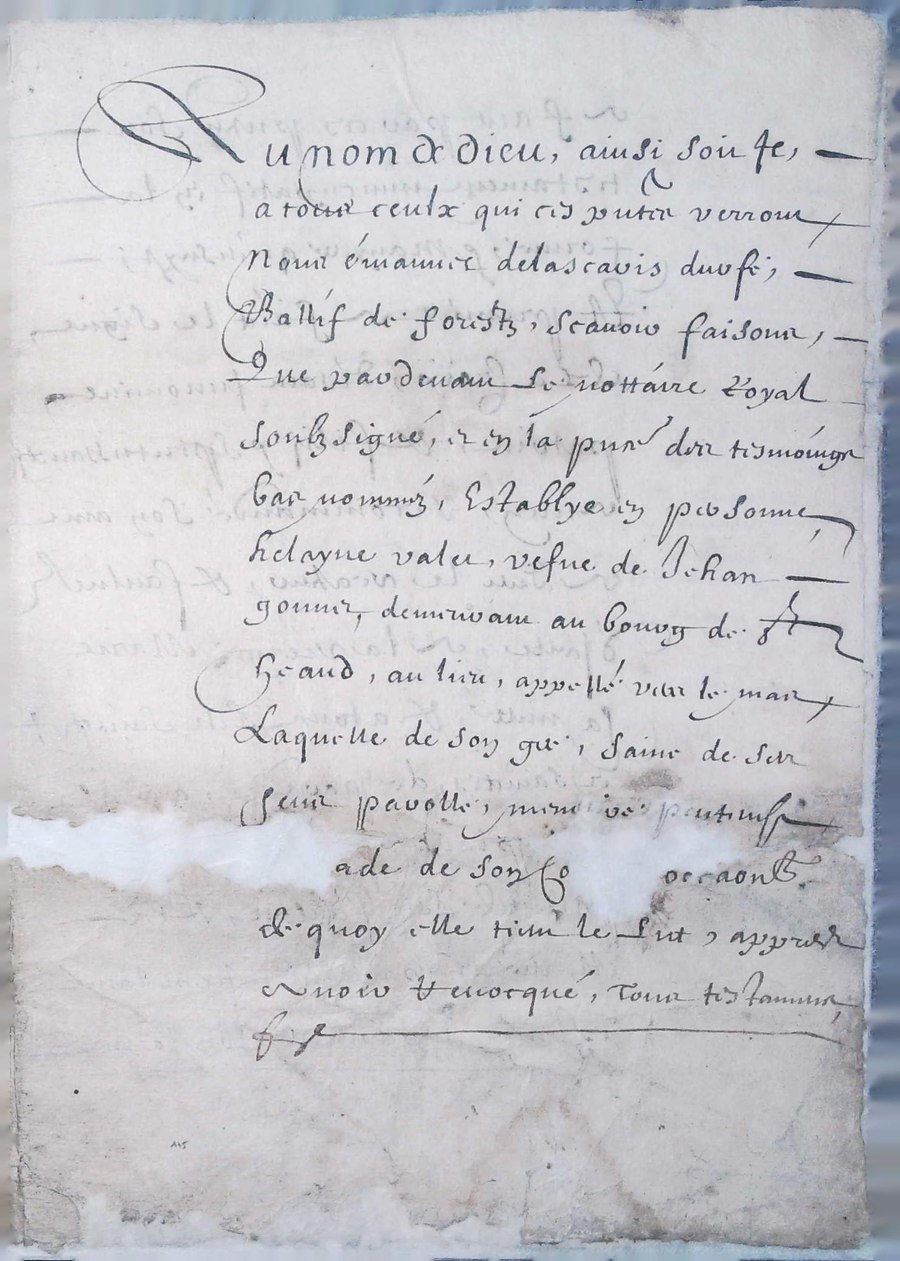 Au nom de dieu, ainsi soit Je,
a tous ceulx qui ces pntes verront
Nous émanuel delascaris durfé,
Ballif de forestz, scavoir faisons,
Que pardevant Le nottáire Royal
soubzsigné, et en la pnce des tesmoings
bas nomméz, Establye en personne
helayne valet, vefve de Jehan
gonnet, demeurant au bourg de St
heand, au lieu, appellé vers le mas
Laquelle de son gré, saine de ses
sens parolle, memoire
ade de son co occaon
de quoy elle tient le Lict, appres
avoir Revocqué, Tous testamens